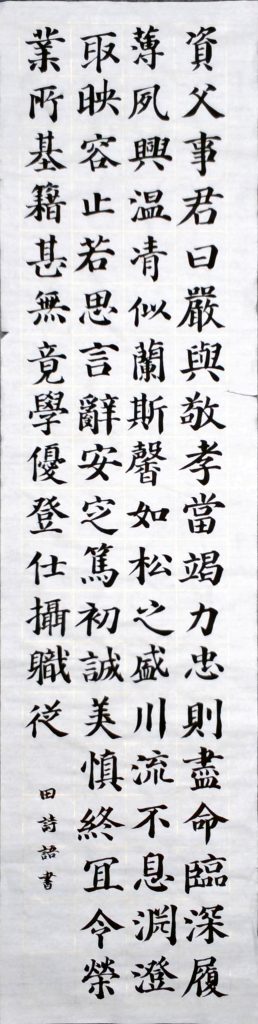 資父事君曰嚴與敬孝當竭力忠則盡命臨深履
薄夙興温凊似蘭斯馨如松之盛川流不息渊澄
取映容止若思言辭安定篤初誠美慎終冝令榮
業所基籍甚無竟學優登仕攝職從
田詩語書